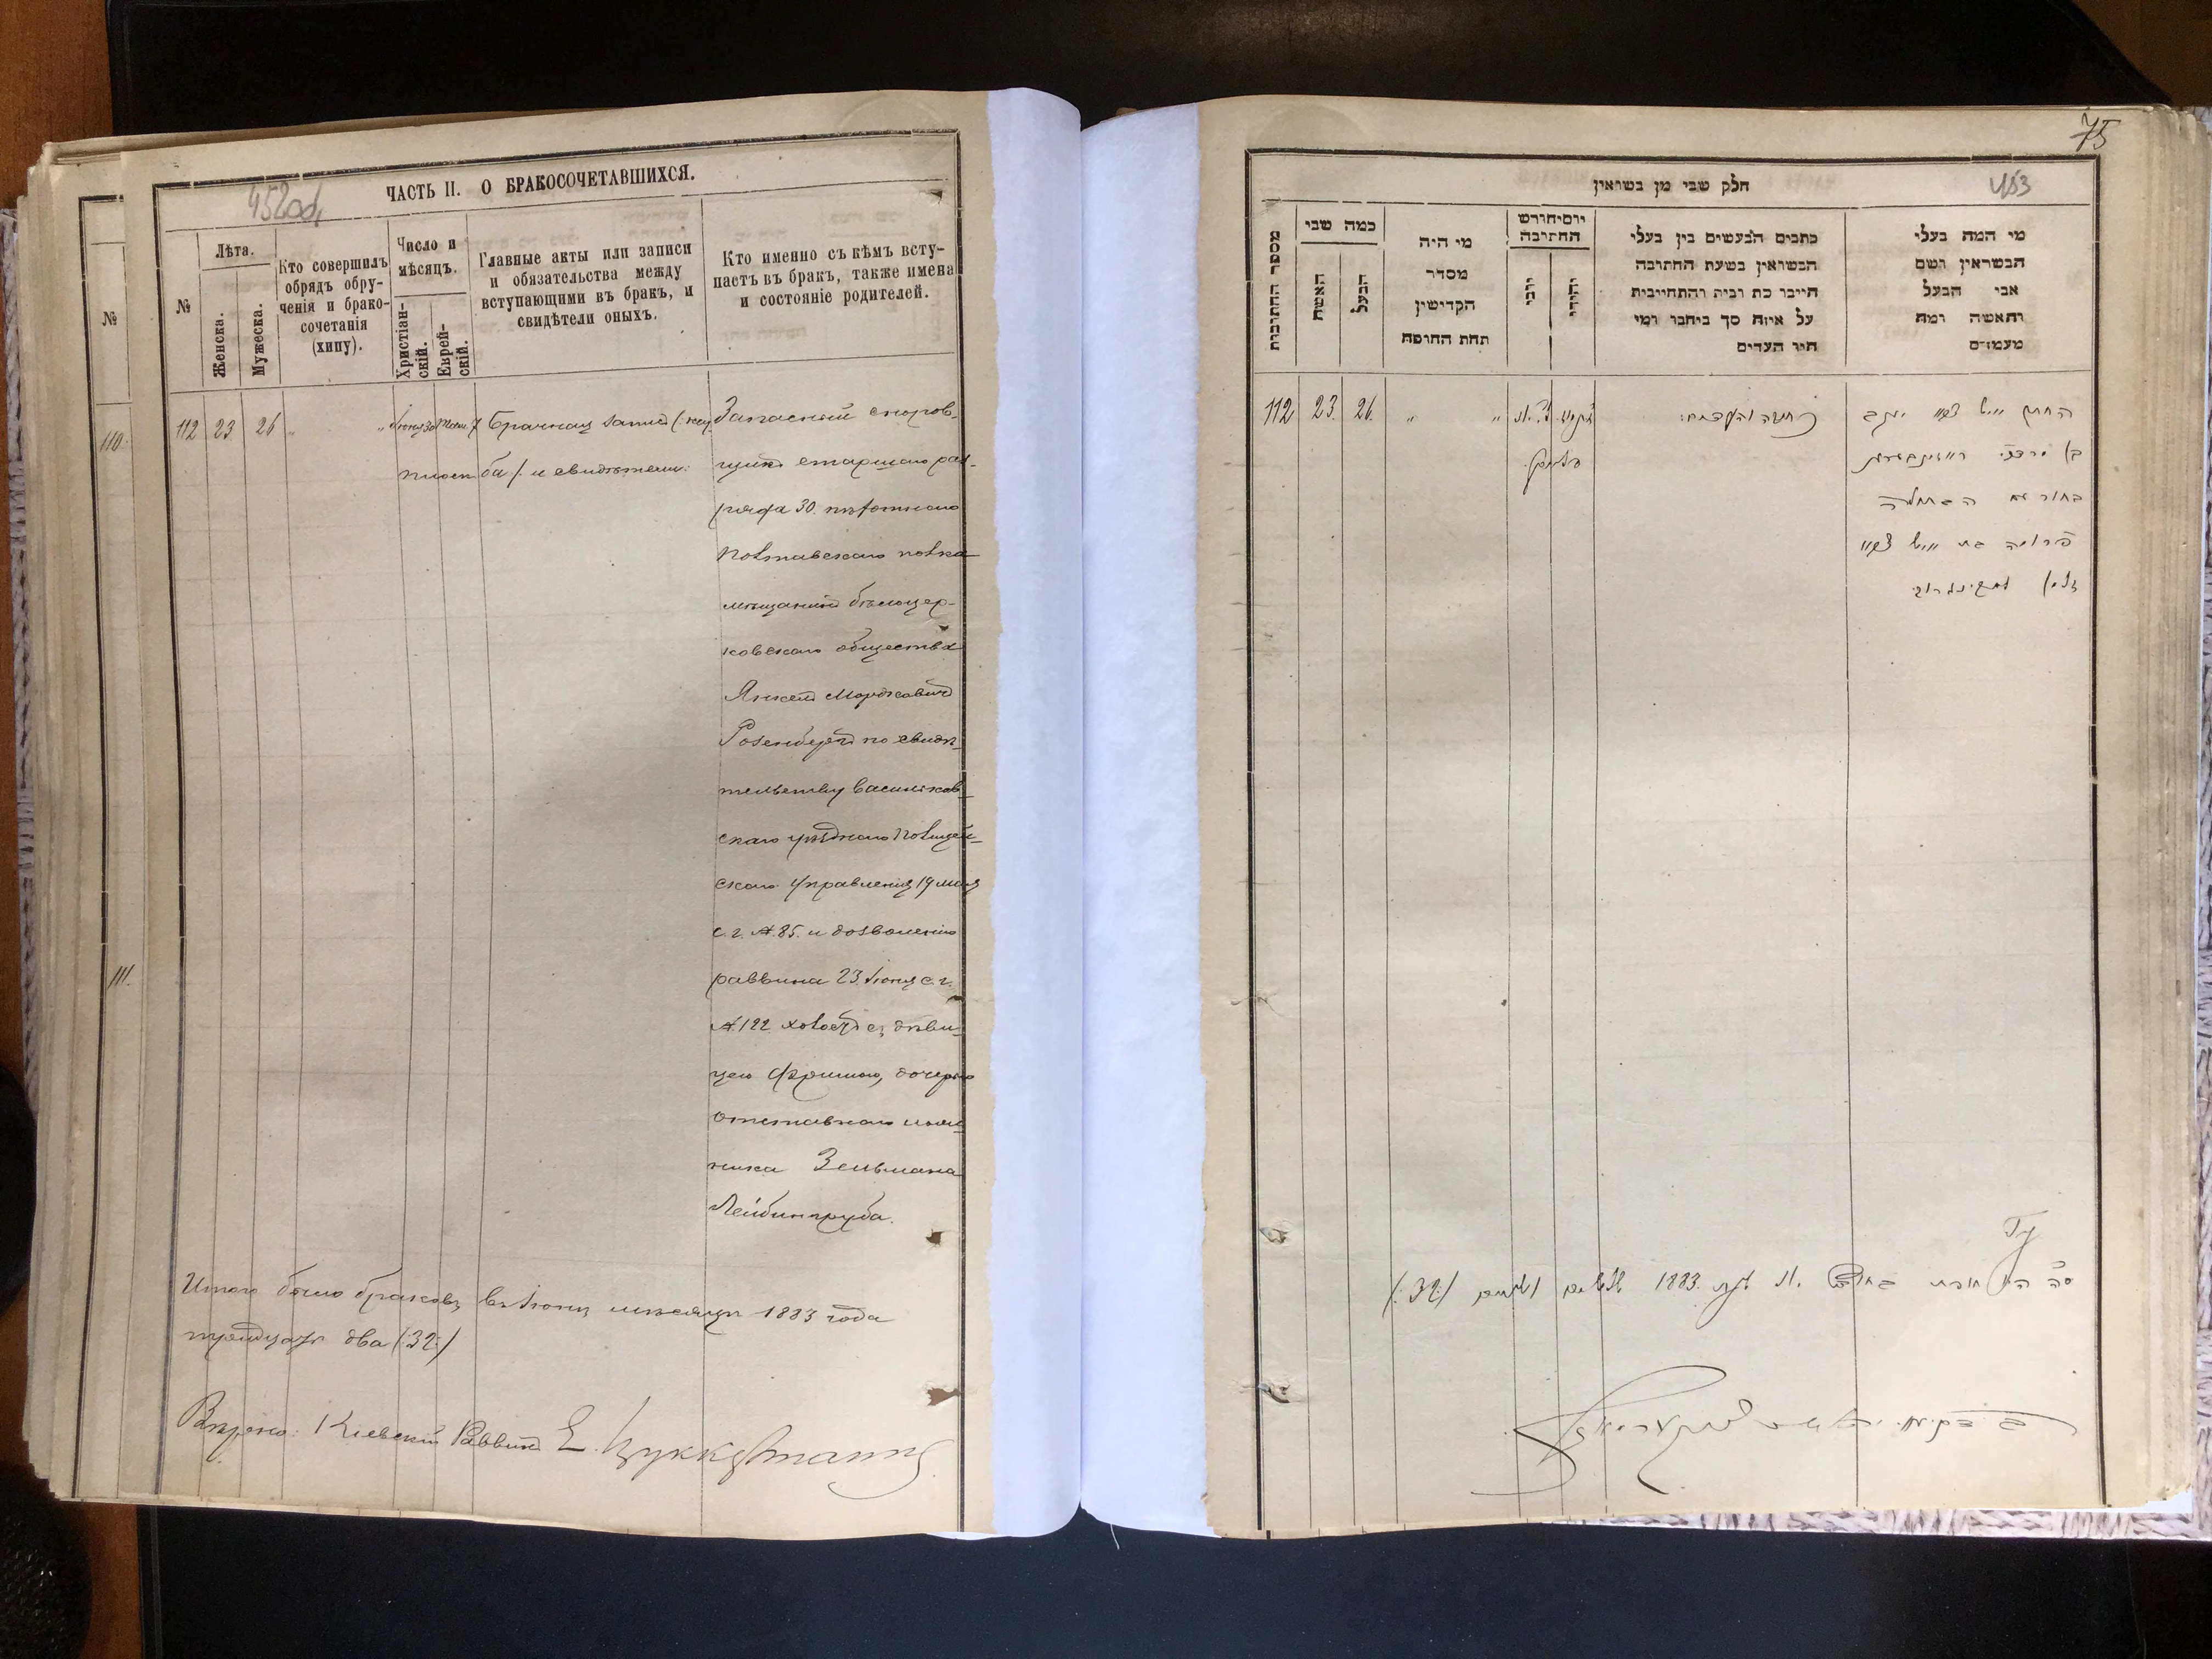 452об.
ЧАСТЬ II. О БРАКОСОЧЕТАВШИХСЯ.
№
110.
111.
№
Лѣта.
Женска.
Мужеска.
Кто совершилъ
обрядъ обру-
ченія и брако-
сочетанія
(хипу).
Число и
мѣсяцъ.
Христіан-
скій.
Еврей-
скій.
Главные акты или записи
и обязательства между
вступающими въ бракъ, и
свидѣтели оныхъ.
Кто именно съ кѣмъ всту-
паетъ въ бракъ, также имена
и состояніе родителей.
112 23 26 " " Іюня 30
Брачная запись (:кту
ба/: и свидѣтели:
Запасный
старшаго раз-
ряда 30. пѣхотнаго
Полтавскаго полка
мѣщанинъ бѣлоцер-
ковскаго общества
Янкель Мордковичъ
Розенбергъ по свидѣ-
тельству Васильков-
скаго уѣзднаго Полицей-
скаго Управленія 19 мая
с. г. № 85. и дозволенію
раввина 23. Іюня с. г.
№ 122 холостъ съ дѣви-
цею Фрумою, дочерью
отставнаго
Зельмана
Лейбингруба.
Итого было браковъ въ Іюнѣ мѣсяцѣ 1883 года
тридцать два (:32:)
Вѣрно: Кіевскій Раввинъ Е. Цуккерманъ
75
453
חלק שני מן נשואין
מספר החתונות
כמה שני
האשה
הבעל
מי היה
מסדר
הקדישין
תחת החופה
יום וחודש
החתונה
נוצרי
יהודי
כתבים הנעשים בין בעלי
הנשואין בשעת החתונה
חייבו כת וביה והתחייבות
על איזה סך ביחבו ומי
היו העדים
מי המה בעלי
הנשואין ושם
אבי הבעל
והאשה ומה
מעמדם
112 23. 26. " "
כתובה והעדים:
החתן איש צבא יעקב
בן מרדכי ראזענבערג
בחור עם הבתולה
פרומה בת איש צבא
זלמן לייבינגרוב
1883 שלשים ושנים (:32:)